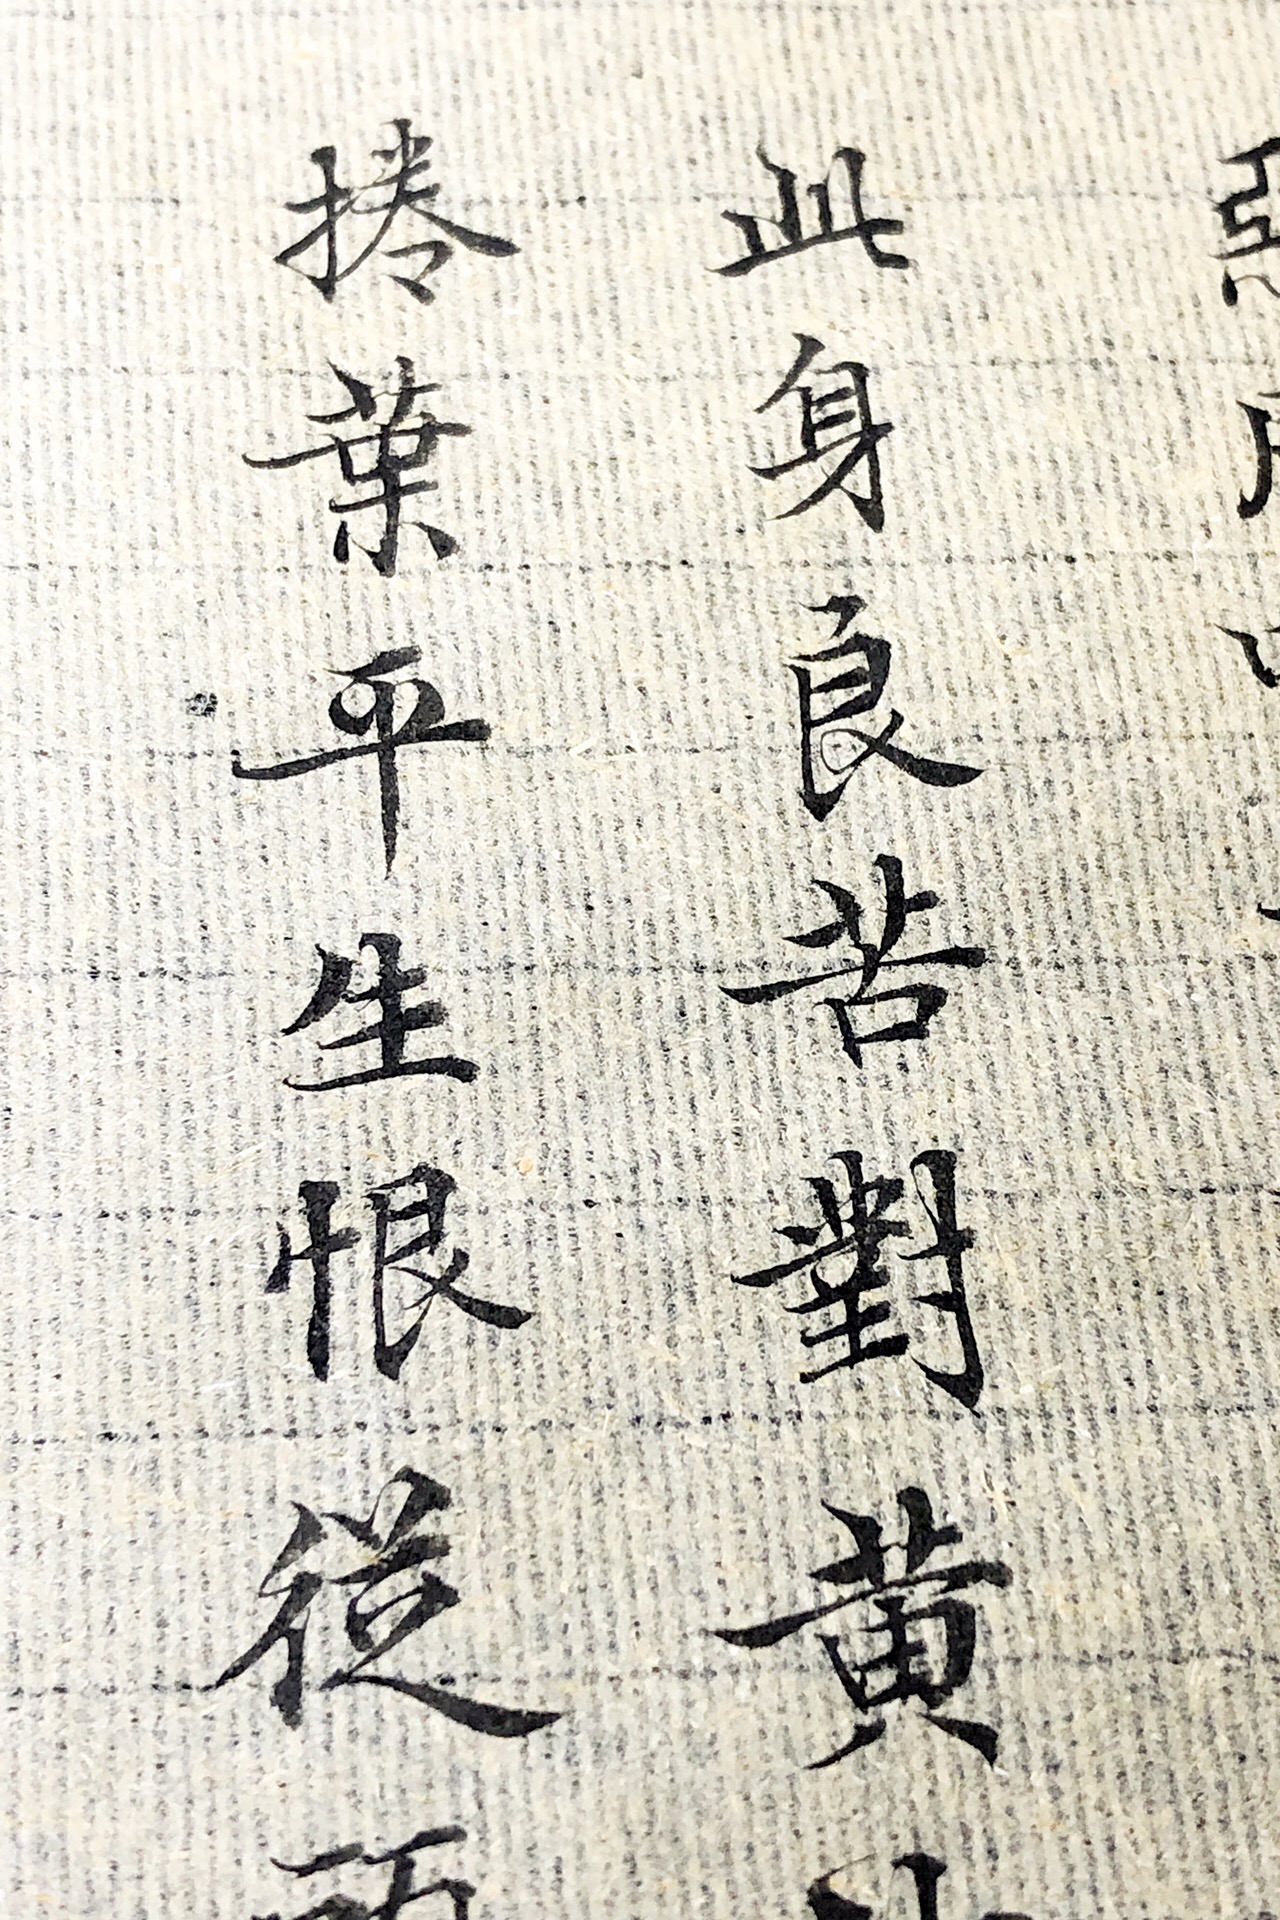 此身良苦對黄
捲葉平生恨從雨